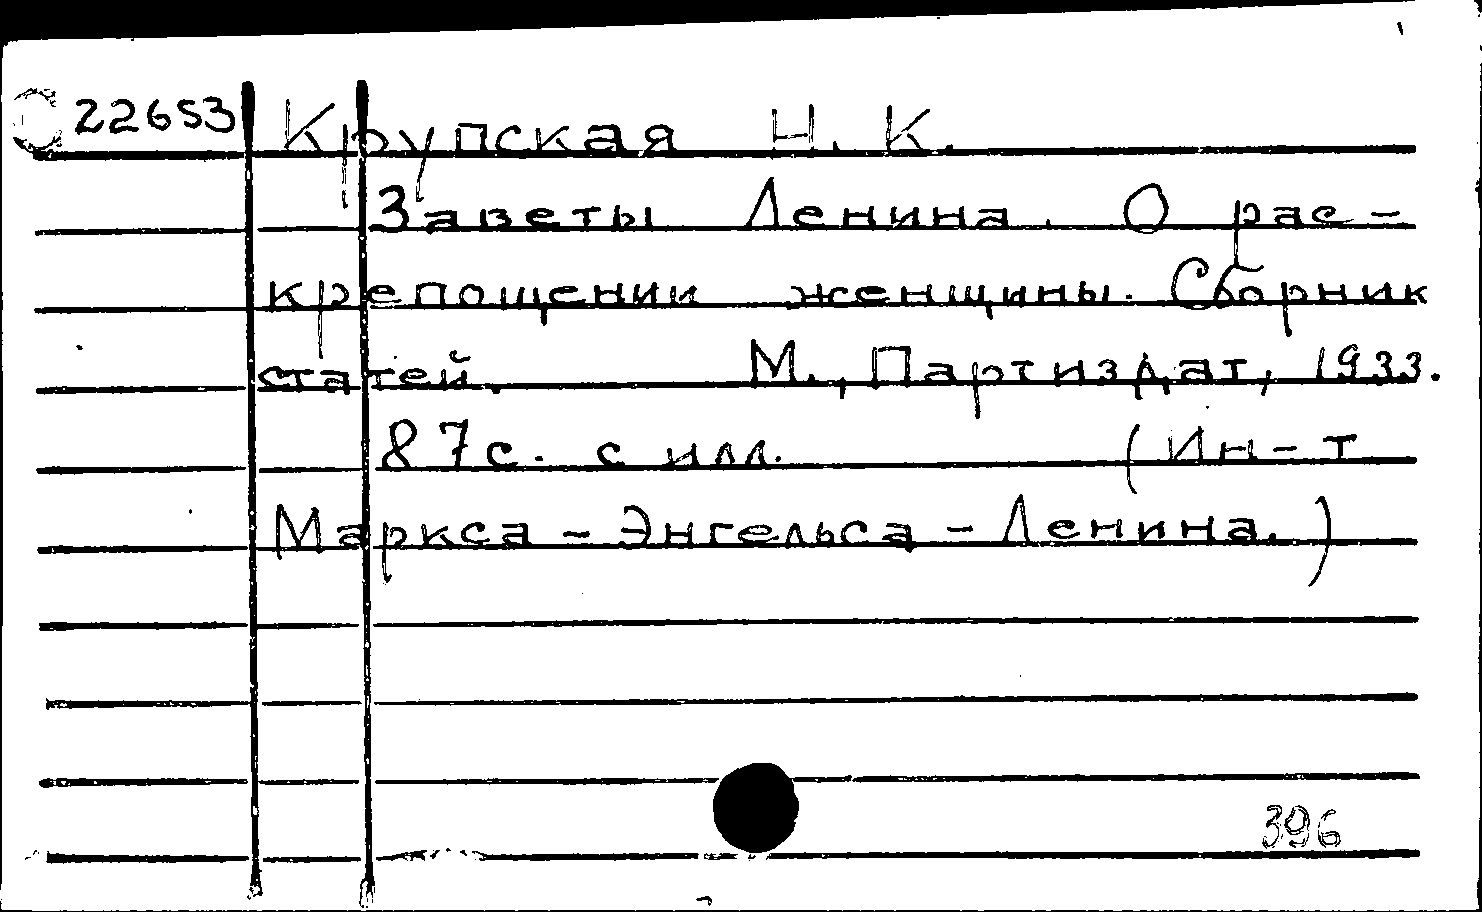 С 22653 Крупская Н. К.
Заветы Ленина. О рас-
крепощении женщины. Сборник
статей. М., Партиздат, 1933.
87с. с илл. (Ин-т
Маркса - Энгельса - Ленина.)
396